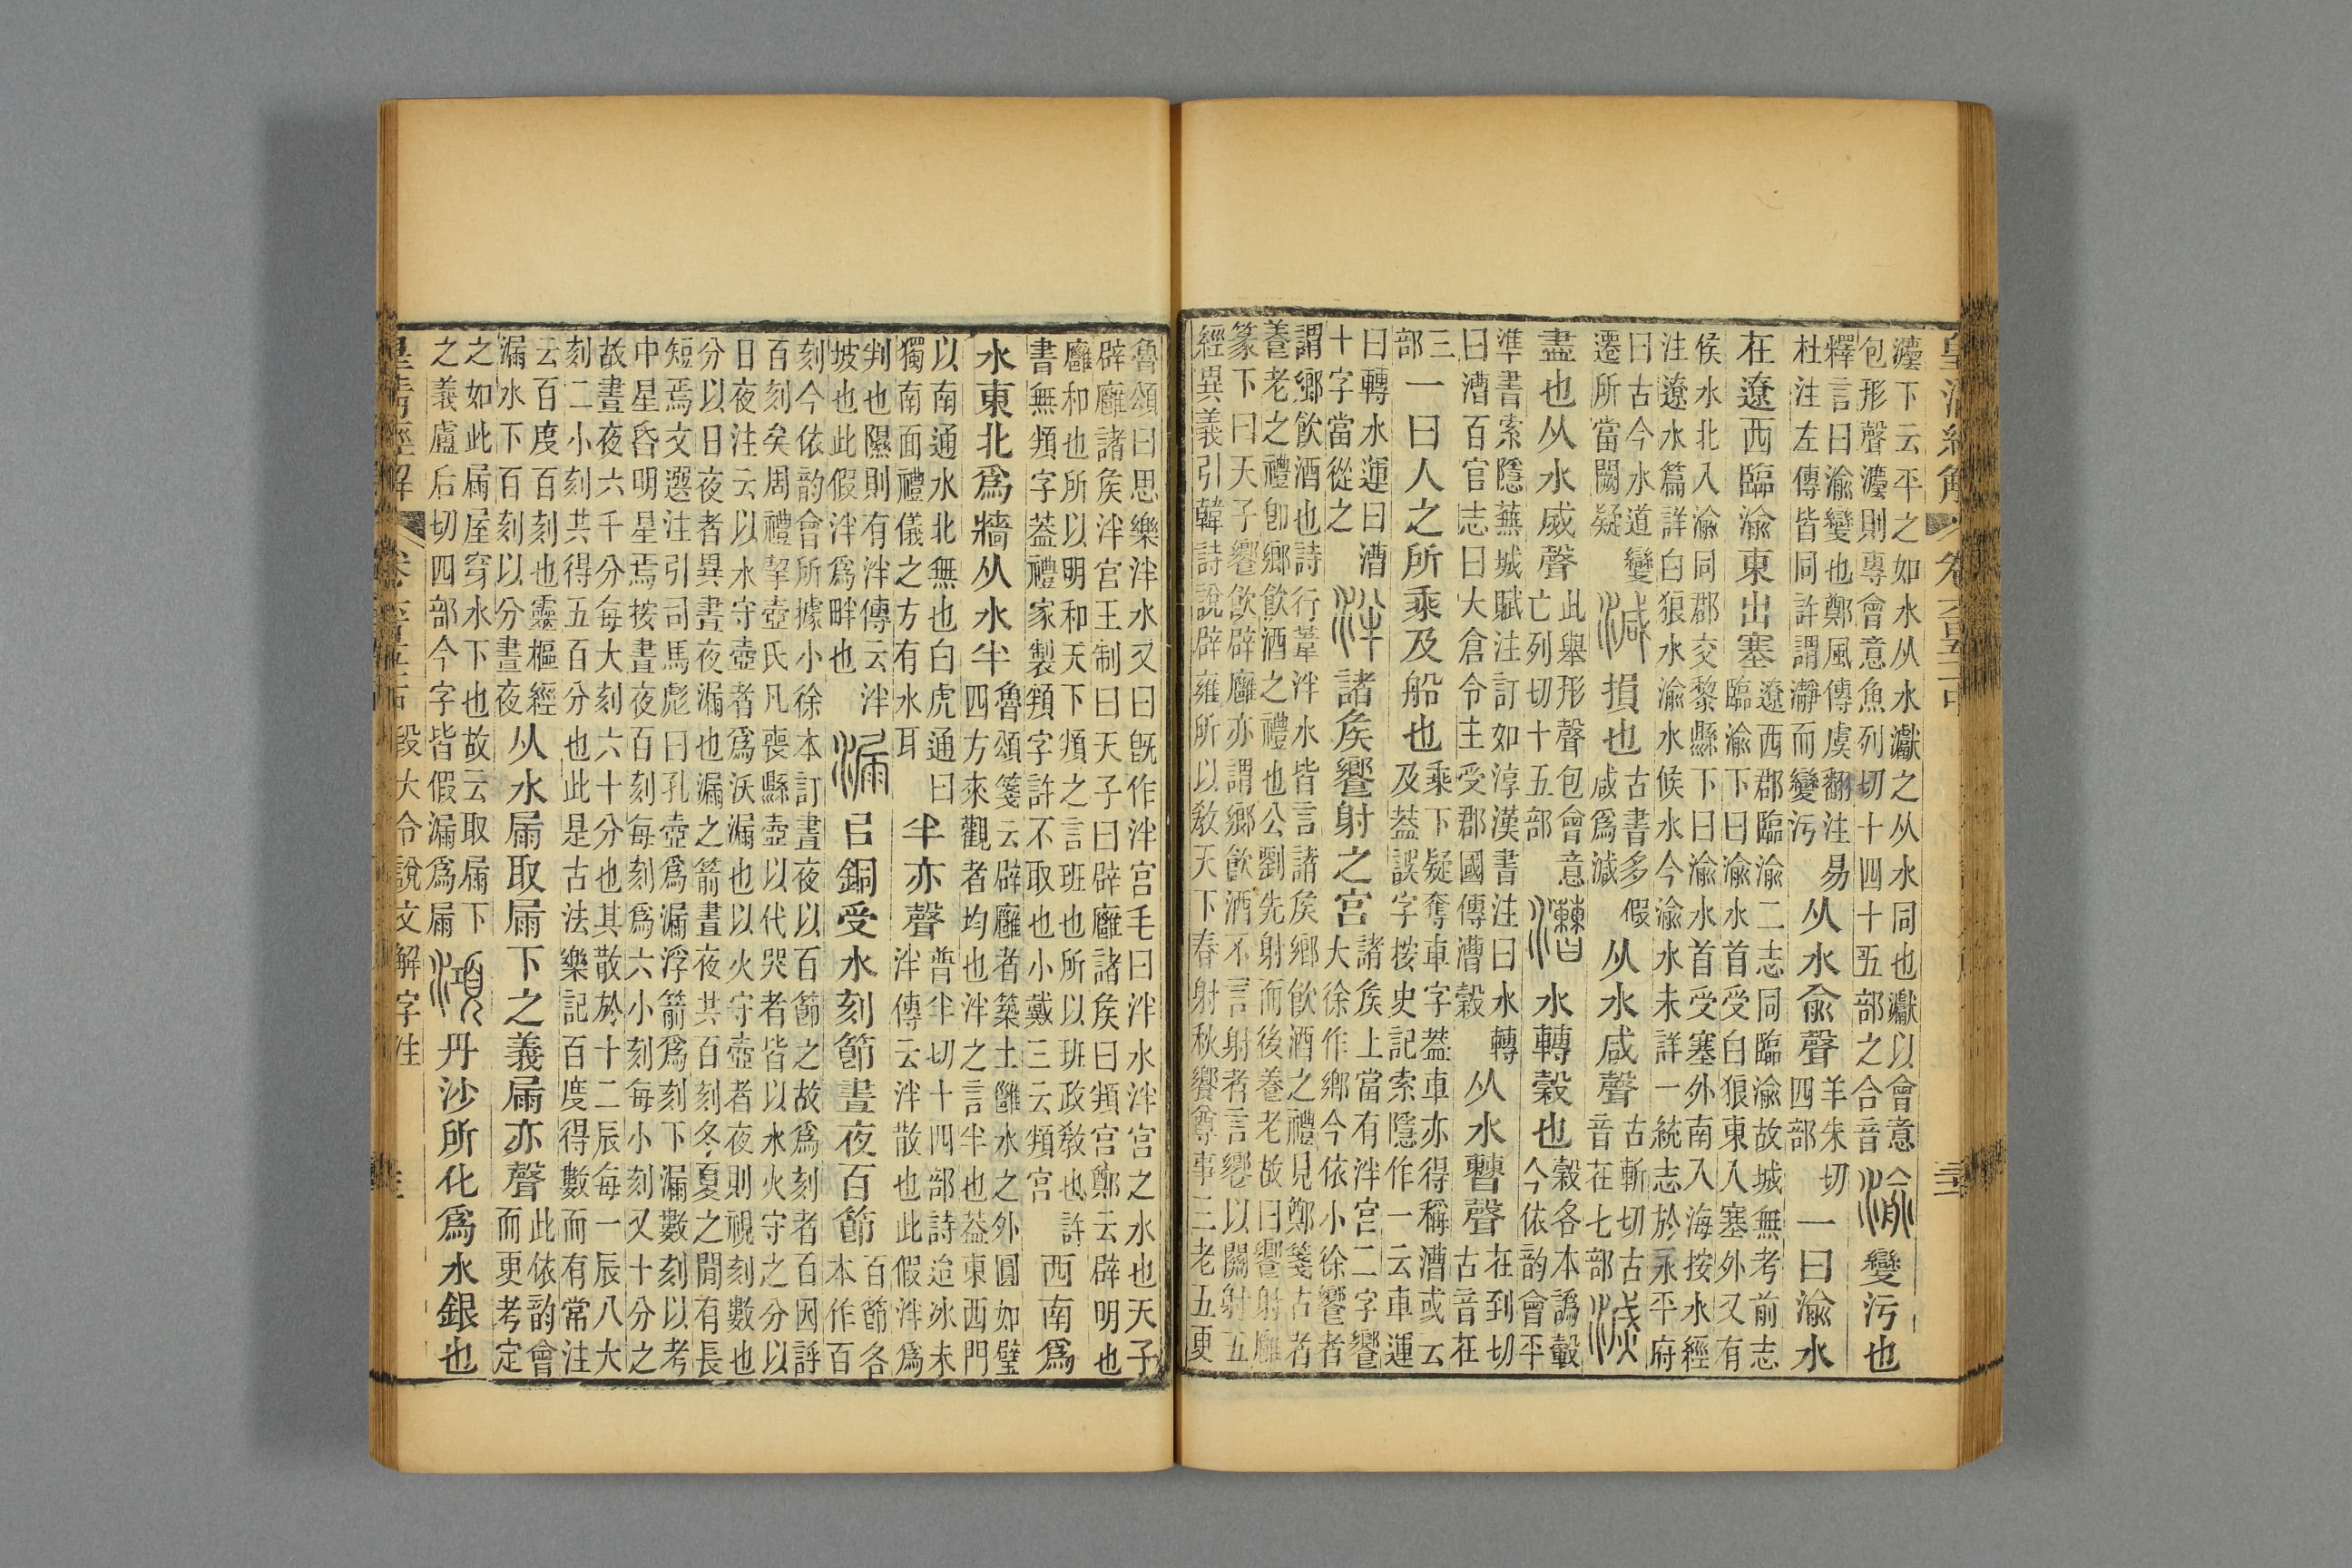 皇清經解
灋下云平之如水从水𤅊之从水同也𤅊以會意
包形聲灋則專會意魚列切十四十五部之合音
渝變污也
釋言曰渝變也鄭風傳虞翻注易
杜注左傳皆同許謂瀞而變污
从水俞聲
羊朱切
四部
一曰渝水
在遼西臨渝東出塞
遼西郡臨渝二志同臨渝故城無考前志
臨渝下曰渝水首受白狼東入塞外又有
侯水北入渝同郡交黎縣下曰渝水首受塞外南入海按水經
注遼水篇詳白狼水渝水候水今渝水未詳一統志於永平府
曰古今水道變
遷所當闕疑
減損也
古書多假
咸爲減
从水咸聲
古斬切古
音在七部
滅
盡也从水烕聲
此舉形聲包會意
亡列切十五部
漕水轉榖也
榖各本譌轂
今依韵會平
準書索隱蕪城賦注訂如淳漢書注曰水轉
曰漕百官志曰大倉令主受郡國傳漕榖
从水𣍘聲
在到切
古音在
三
部
一曰人之所乘及船也
乘下疑奪車字葢車亦得稱漕或云
及葢誤字按史記索隱作一云車運
曰轉水運曰漕
十字當從之
泮諸矦饗射之宮
諸矦上當有泮宮二字饗
大徐作鄉今依小徐饗者
謂鄉飮酒也詩行葦泮水皆言諸矦鄉飮酒之禮見鄭箋古者
養老之禮卽鄉飮酒之禮也公劉先射而後養老故曰饗射廱
篆下曰天子饗飮辟廱亦謂鄉飮酒不言射者言饗以關射五
經異義引韓詩說辟雍所以敎天下春射秋饗尊事三老五更
魯頌曰思樂泮水又曰旣作泮宮毛曰泮水泮宮之水也天子
辟廱諸矦泮宮王制曰天子曰辟廱諸矦曰頖宮鄭云辟明也
廱和也所以明和天下頖之言班也所以班政敎也許
書無頖字葢禮家製頖字許不取也小戴三云頖宮
西南爲
水東北爲牆从水半
魯頌箋云辟廱者築土雝水之外圓如璧
四方來觀者均也泮之言半也葢東西門
以南通水北無也白虎通曰
獨南面禮儀之方有水耳
半亦聲
普半切十四部詩迨冰未
泮傳云泮散也此假泮爲
判也隰則有泮傳云泮
坡也此假泮爲畔也
漏㠯銅受水刻節晝夜百節
百節各
本作百
刻今依韵會所據小徐本訂晝夜以百節之故爲刻者百因評
百刻矣周禮挈壺氏凡喪縣壺以代哭者皆以水火守之分以
日夜注云以水守壺者爲沃漏也以火守壺者夜則視刻數也
分以日夜者異晝夜漏也漏之箭晝夜共百刻冬夏之閒有長
短焉文選注引司馬彪曰孔壺爲漏浮箭爲刻下漏數刻以考
中星昏明星焉按晝夜百刻每刻爲六小刻每小刻又十分之
故晝夜六千分每大刻六十分也其散於十二辰每一辰八大
刻二小刻共得五百分也此是古法樂記百度得數而有常注
云百度百刻也靈樞經
漏水下百刻以分晝夜
从水屚取屚下之義屚亦聲
此依韵會
而更考定
之如此屚屋穿水下也故云取屚下
之義盧后切四部今字皆假漏爲屚
澒丹沙所化爲水銀也
皇清經解
段大令說文解字注